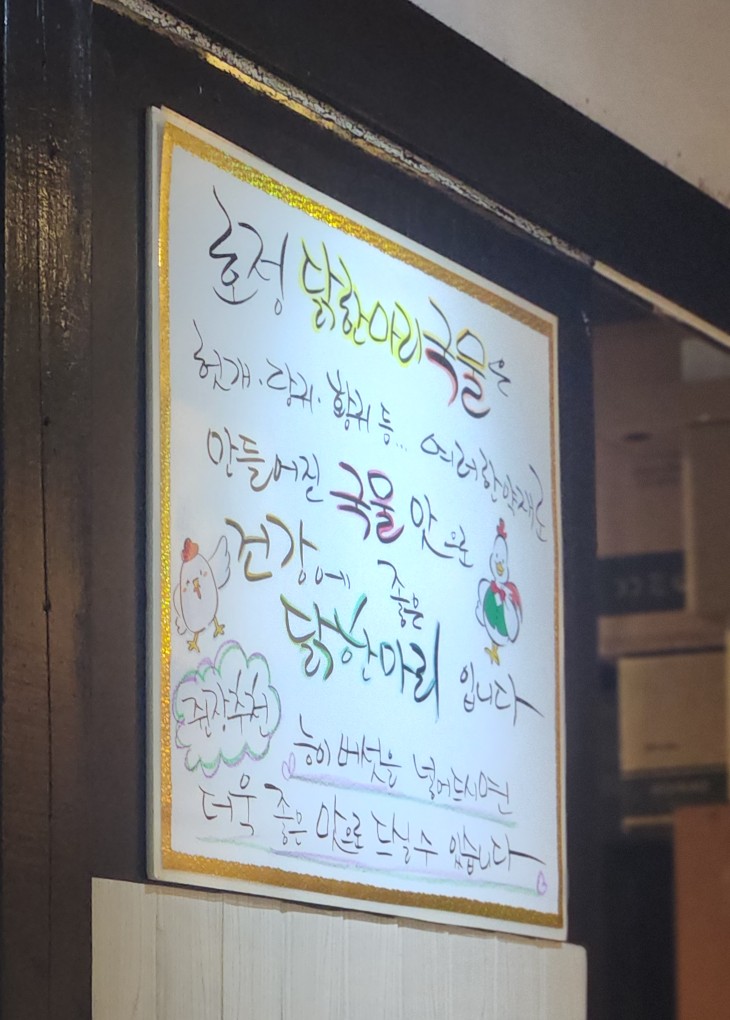 호정 닭한마리국물은
헛개·당귀·황귀 등... 여러한약재로
만들어진 국물 맛으로
건강에 좋은
닭한마리 입니다
쥔장추천
능이버섯을 넣어드시면
더욱 좋은 맛으로 드실수 있습니다